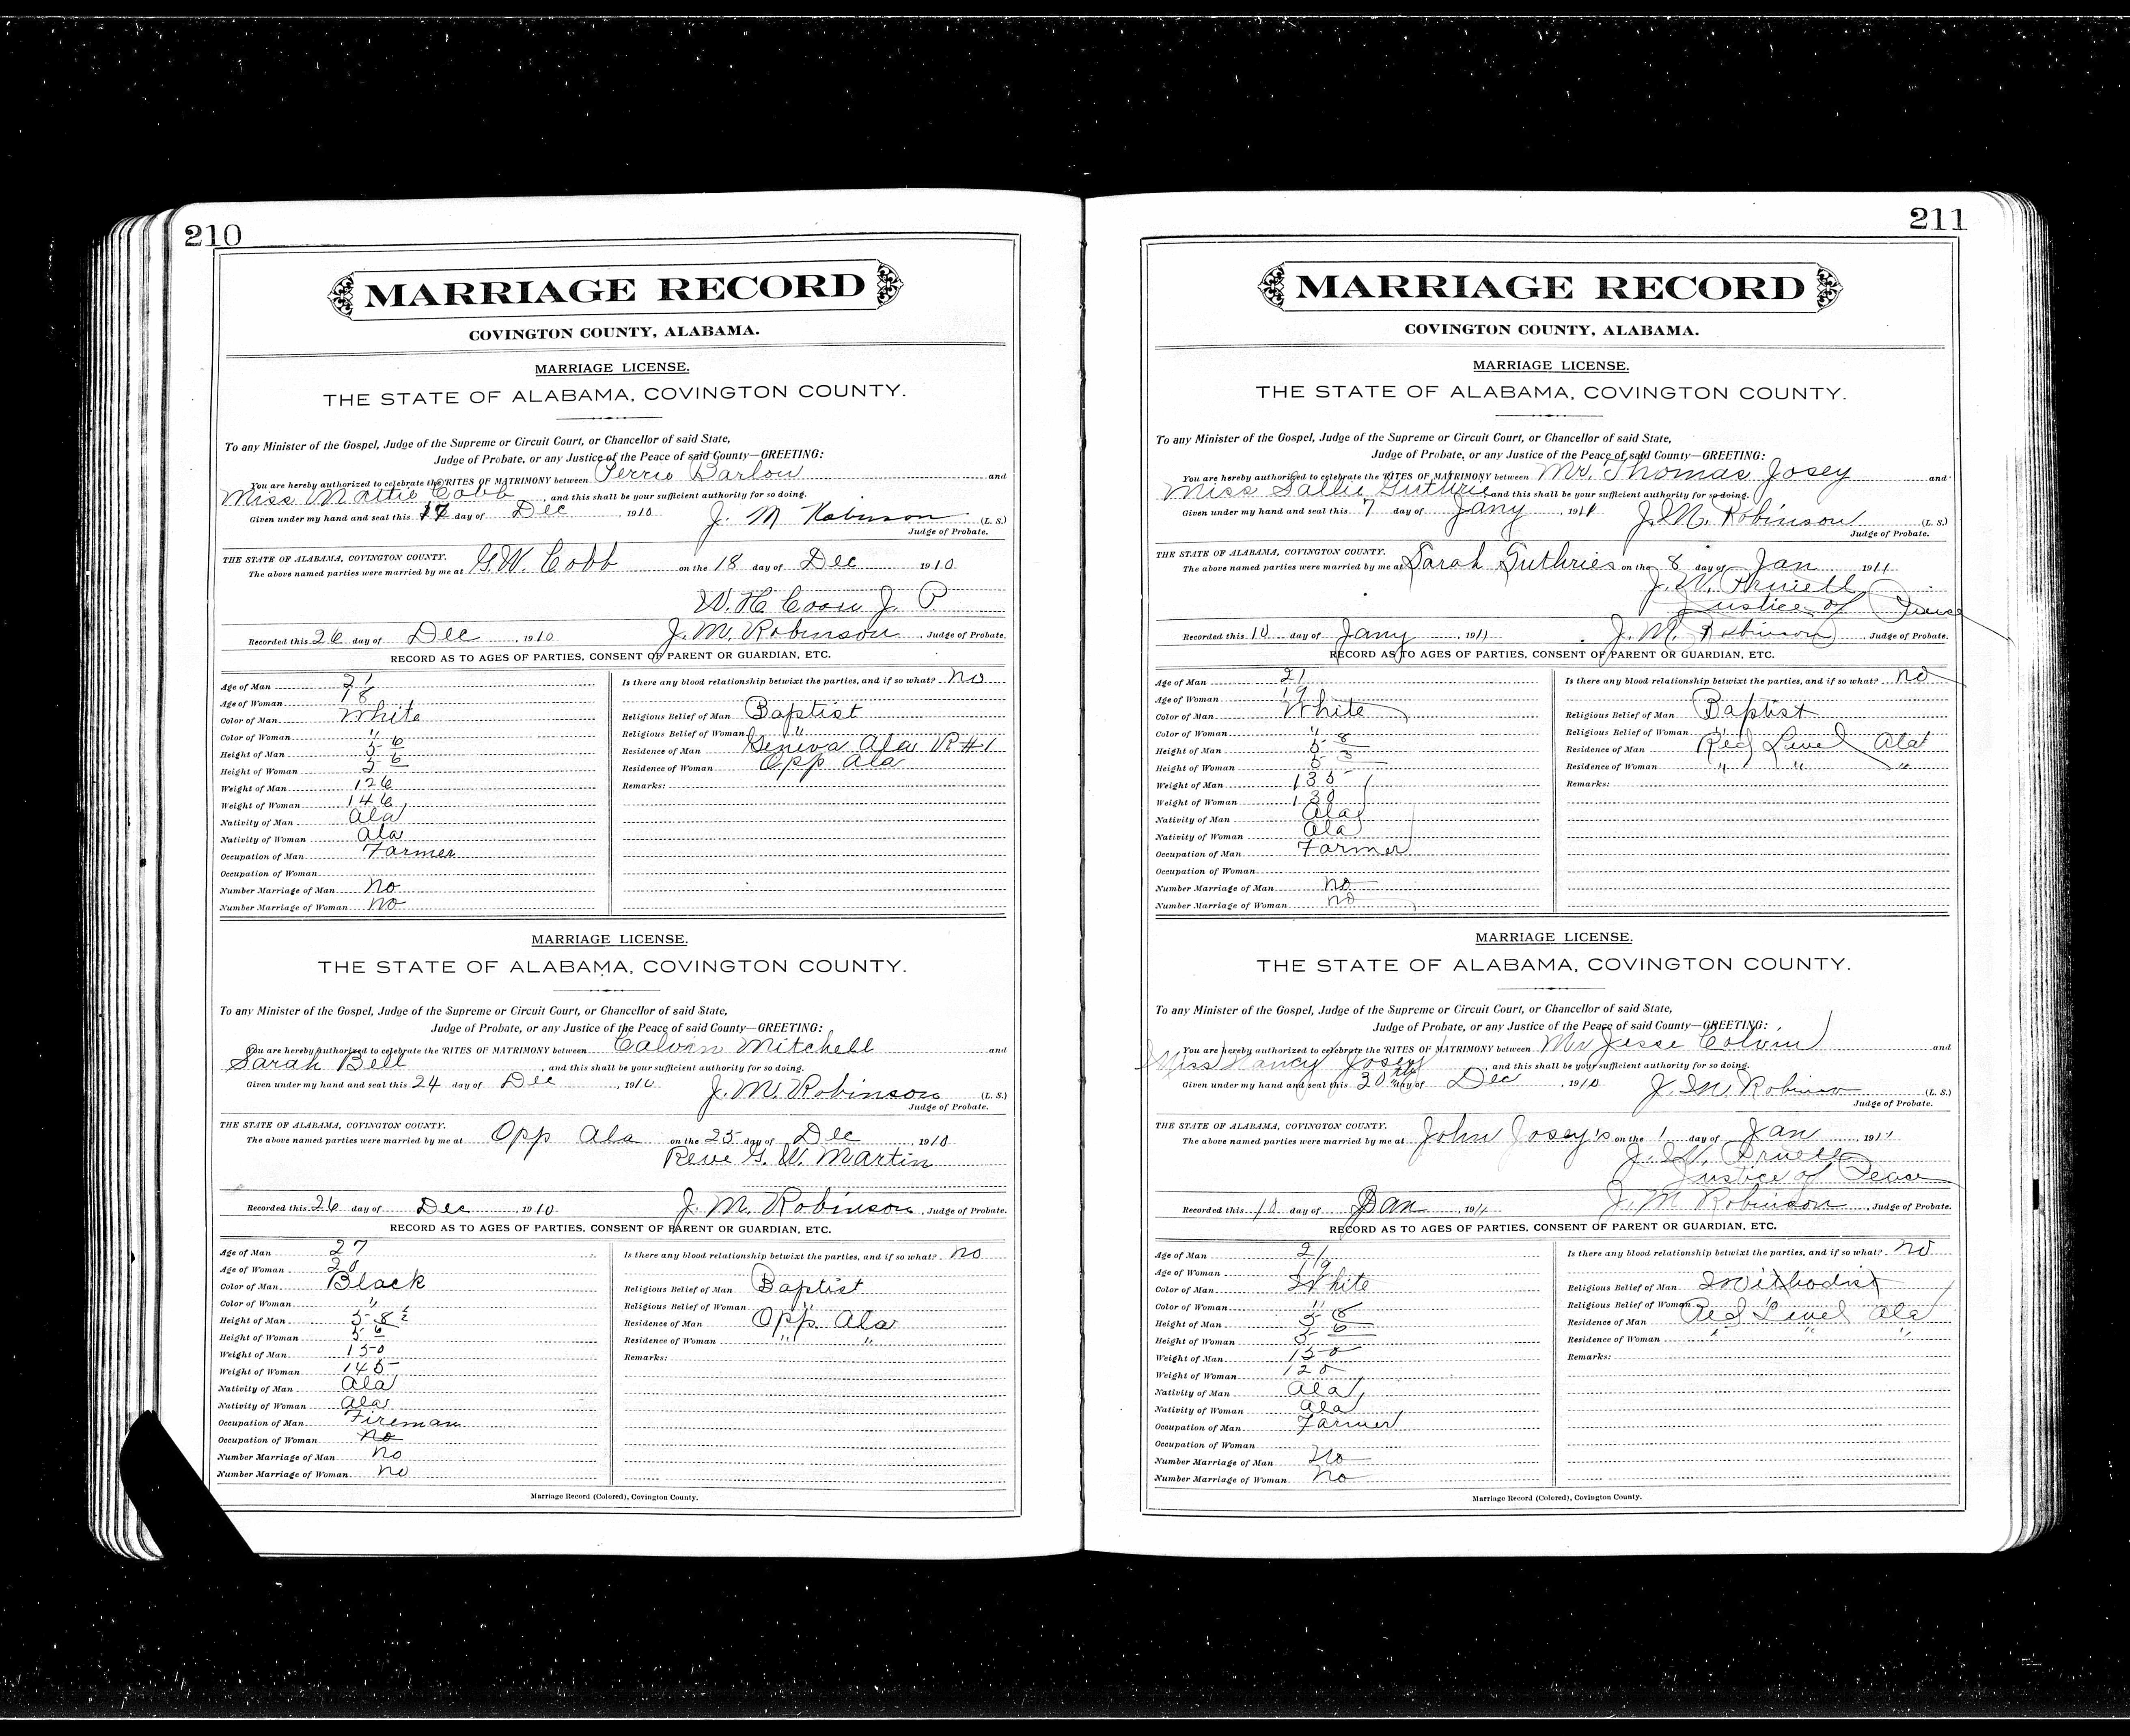 210
MARRIAGE RECORD
COVINGTON COUNTY, ALABAMA.
MARRIAGE LICENSE.
THE STATE OF ALABAMA, COVINGTON COUNTY.
To any Minister of the Gospel, Judge of the Supreme or Circuit Court, or Chancellor of said State,
Judge of Probate, or any Justice of the Peace of said County—GREETING:
You are hereby authorized to celebrate the RITES OF MATRIMONY between Perrie Barlow and
Miss Mattie Cobb, and this shall be your sufficient authority for so doing.
Given under my hand and seal this 17 day of Dec, 1910 J. M Robinson (L. S.)
Judge of Probate.
THE STATE OF ALABAMA, COVINGTON COUNTY.
The above named parties were married by me at G.W. Cobb on the 18 day of Dec 1910
W. H. J. P
Recorded this 26 day of Dec, 1910 J. M. Robinson, Judge of Probate.
RECORD AS TO AGES OF PARTIES, CONSENT OF PARENT OR GUARDIAN, ETC.
Age of Man 21
Age of Woman 18
Color of Man White
Color of Woman "
Height of Man 5-6
Height of Woman 5-6
Weight of Man 126
Weight of Woman 146
Nativity of Man Ala
Nativity of Woman Ala
Occupation of Man Farmer
Occupation of Woman
Number Marriage of Man No
Number Marriage of Woman No
Is there any blood relationship betwixt the parties, and if so what? No
Religious Belief of Man Baptist
Religious Belief of Woman "
Residence of Man Geneva Ala R#1
Residence of Woman Opp Ala
Remarks:
MARRIAGE LICENSE.
THE STATE OF ALABAMA, COVINGTON COUNTY.
To any Minister of the Gospel, Judge of the Supreme or Circuit Court, or Chancellor of said State,
Judge of Probate, or any Justice of the Peace of said County—GREETING:
You are hereby authorized to celebrate the RITES OF MATRIMONY between Calvin Mitchell and
Sarah Bell, and this shall be your sufficient authority for so doing.
Given under my hand and seal this 24 day of Dec, 1910. J. M. Robinson (L. S.)
Judge of Probate.
THE STATE OF ALABAMA, COVINGTON COUNTY.
The above named parties were married by me at Opp Ala on the 25 day of Dec, 1910
Reve G. W. Martin
Recorded this 26 day of Dec, 1910 J. M. Robinson, Judge of Probate.
RECORD AS TO AGES OF PARTIES, CONSENT OF PARENT OR GUARDIAN, ETC.
Age of Man 27
Age of Woman 20
Color of Man Black
Color of Woman "
Height of Man 5-8½
Height of Woman 5-6
Weight of Man 150
Weight of Woman 145
Nativity of Man Ala
Nativity of Woman Ala
Occupation of Man Fireman
Occupation of Woman No
Number Marriage of Man No
Number Marriage of Woman No
Is there any blood relationship betwixt the parties, and if so what? No
Religious Belief of Man Baptist
Religious Belief of Woman "
Residence of Man Opp Ala
Residence of Woman " "
Remarks:
Marriage Record (Colored), Covington County.
211
MARRIAGE RECORD
COVINGTON COUNTY, ALABAMA.
MARRIAGE LICENSE.
THE STATE OF ALABAMA, COVINGTON COUNTY.
To any Minister of the Gospel, Judge of the Supreme or Circuit Court, or Chancellor of said State,
Judge of Probate, or any Justice of the Peace of said County—GREETING:
You are hereby authorized to celebrate the RITES OF MATRIMONY between Mr. Thomas Josey and
Miss Sallie Guthrie and this shall be your sufficient authority for so doing.
Given under my hand and seal this 7 day of Jany, 1911 J. M. Robinson (L. S.)
Judge of Probate.
THE STATE OF ALABAMA, COVINGTON COUNTY.
The above named parties were married by me at Sarah Guthries on the 8 day of Jan 1911
J. W. Pruett
Justice of Peace
Recorded this 10 day of Jany, 1911 J. M. Robinson, Judge of Probate.
RECORD AS TO AGES OF PARTIES, CONSENT OF PARENT OR GUARDIAN, ETC.
Age of Man 21
Age of Woman 19
Color of Man White
Color of Woman "
Height of Man 5-8
Height of Woman 5-3
Weight of Man 135
Weight of Woman 130
Nativity of Man Ala
Nativity of Woman Ala
Occupation of Man Farmer
Occupation of Woman
Number Marriage of Man No
Number Marriage of Woman No
Is there any blood relationship betwixt the parties, and if so what? No
Religious Belief of Man Baptist
Religious Belief of Woman "
Residence of Man Red Level Ala
Residence of Woman " " "
Remarks:
MARRIAGE LICENSE.
THE STATE OF ALABAMA, COVINGTON COUNTY.
To any Minister of the Gospel, Judge of the Supreme or Circuit Court, or Chancellor of said State,
Judge of Probate, or any Justice of the Peace of said County—GREETING:
You are hereby authorized to celebrate the RITES OF MATRIMONY between Mr Jesse Colvin and
Miss Nancy Josey, and this shall be your sufficient authority for so doing.
Given under my hand and seal this 30th day of Dec, 1910 J. M. Robinson (L. S.)
Judge of Probate.
THE STATE OF ALABAMA, COVINGTON COUNTY.
The above named parties were married by me at John Josey's on the 1 day of Jan, 1911
J. W. Pruett
Justice of Pease
Recorded this 10 day of Jan, 1911 J. M Robinson, Judge of Probate.
RECORD AS TO AGES OF PARTIES, CONSENT OF PARENT OR GUARDIAN, ETC.
Age of Man 21
Age of Woman 19
Color of Man White
Color of Woman "
Height of Man 5-8
Height of Woman 5-6
Weight of Man 150
Weight of Woman 120
Nativity of Man Ala
Nativity of Woman Ala
Occupation of Man Farmer
Occupation of Woman
Number Marriage of Man No
Number Marriage of Woman No
Is there any blood relationship betwixt the parties, and if so what? No
Religious Belief of Man Methodist
Religious Belief of Woman "
Residence of Man Red Level Ala
Residence of Woman " " "
Remarks:
Marriage Record (Colored), Covington County.